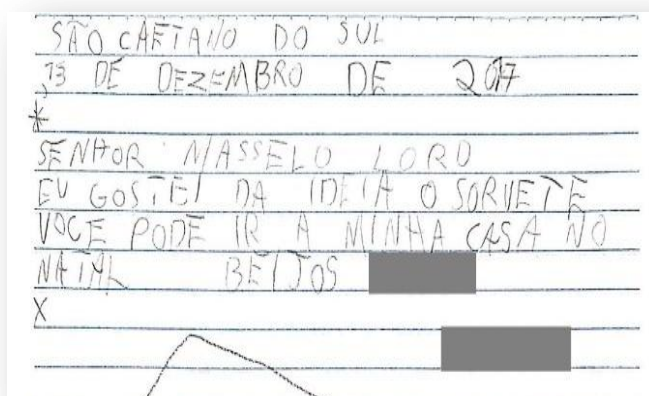 SÃO CAETANO DO SUL
,13 DE DEZEMBRO DE 2017
*
SENHOR MASSELO LORD
EU GOSTEI DA IDEIA O SORVETE
VOCE PODE IR A MINHA CASA NO
NATAL BEIJOS
X